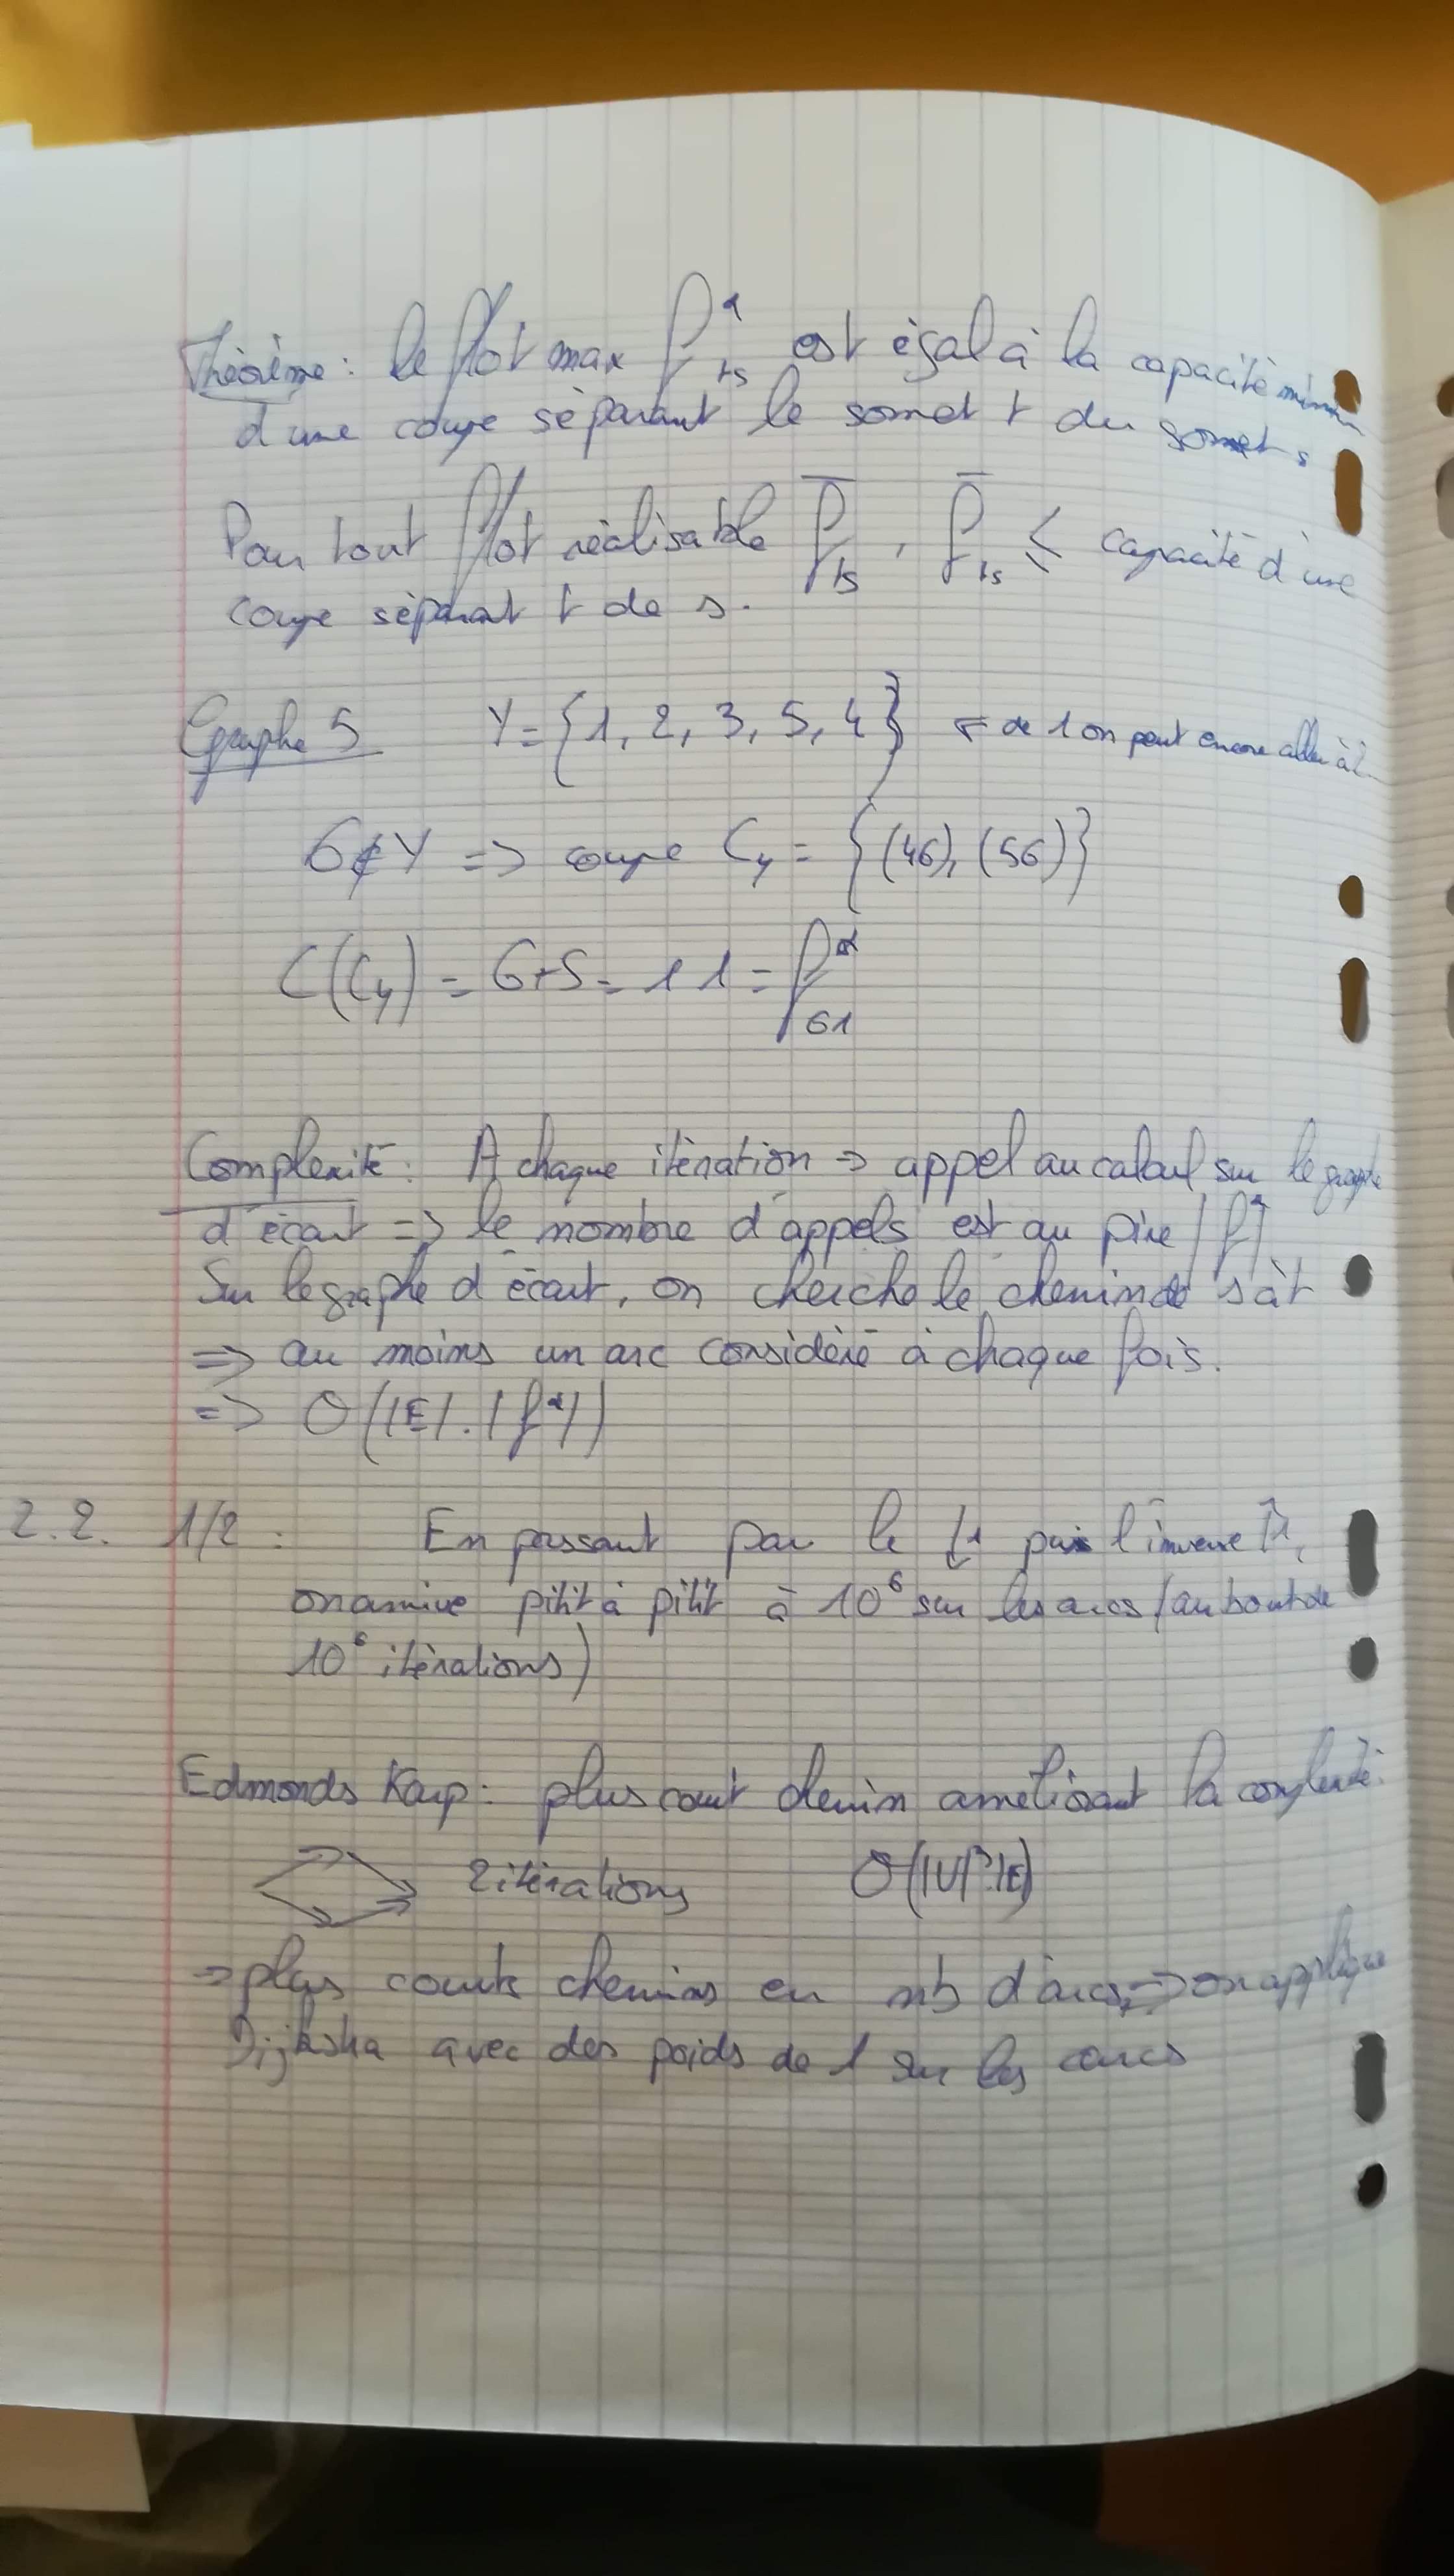 Théorème : le flot max f*ts est égal à la capacité minimum
d'une coupe séparant le somet t du somet s
Pour tout flot réalisable f̅ts, f̅ts ≤ capacité d'une
coupe séparant t de s.
Graphe 5 Y = {1, 2, 3, 5, 4} de 1 on peut encore aller à 2
6 ∉ Y => coupe Cy = {(46), (56)}
C(Cy) = 6+5 = 11 = f*61
Complexité : A chaque itération => appel au calcul sur le graphe
d'écart => le nombre d'appels est au pire |f*|
Sur le graphe d'écart, on cherche le chemin de s à t
=> au moins un arc considéré à chaque fois.
=> O(|E|.|f*|)
2.2. 1/2 : En passant par le ↓1 puis l'inverse ↑1,
on arrive ptit à ptit à 10⁶ sur les arcs (au bout de
10⁶ itérations)
Edmonds Karp : plus court chemin améliorant la complexité.
2 itérations O(|V|².|E|)
=> plus courts chemins en nb d'arcs => on applique
Dijkstra avec des poids de 1 sur les arcs